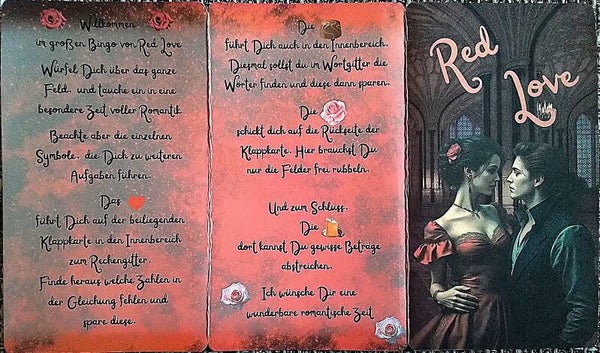 Willkommen
im großen Bingo von Red Love
Würfel Dich über das ganze
Feld, und tauche ein in eine
besondere Zeit voller Romantik.
Beachte aber die einzelnen
Symbole, die Dich zu weiteren
Aufgaben führen.
Das
führt Dich auf der beiliegenden
Klappkarte in den Innenbereich
zum Rechengitter.
Finde heraus welche Zahlen in
der Gleichung fehlen und
spare diese.
Die
führt Dich auch in den Innenbereich.
Diesmal sollst du im Wortgitter die
Wörter finden und diese dann sparen.
Die
schickt dich auf die Rückseite der
Klappkarte. Hier brauchst Du
nur die Felder frei rubbeln.
Und zum Schluss.
Die
dort kannst Du gewisse Beträge
abstreichen.
Ich wünsche Dir eine
wunderbare romantische Zeit
Red
Love